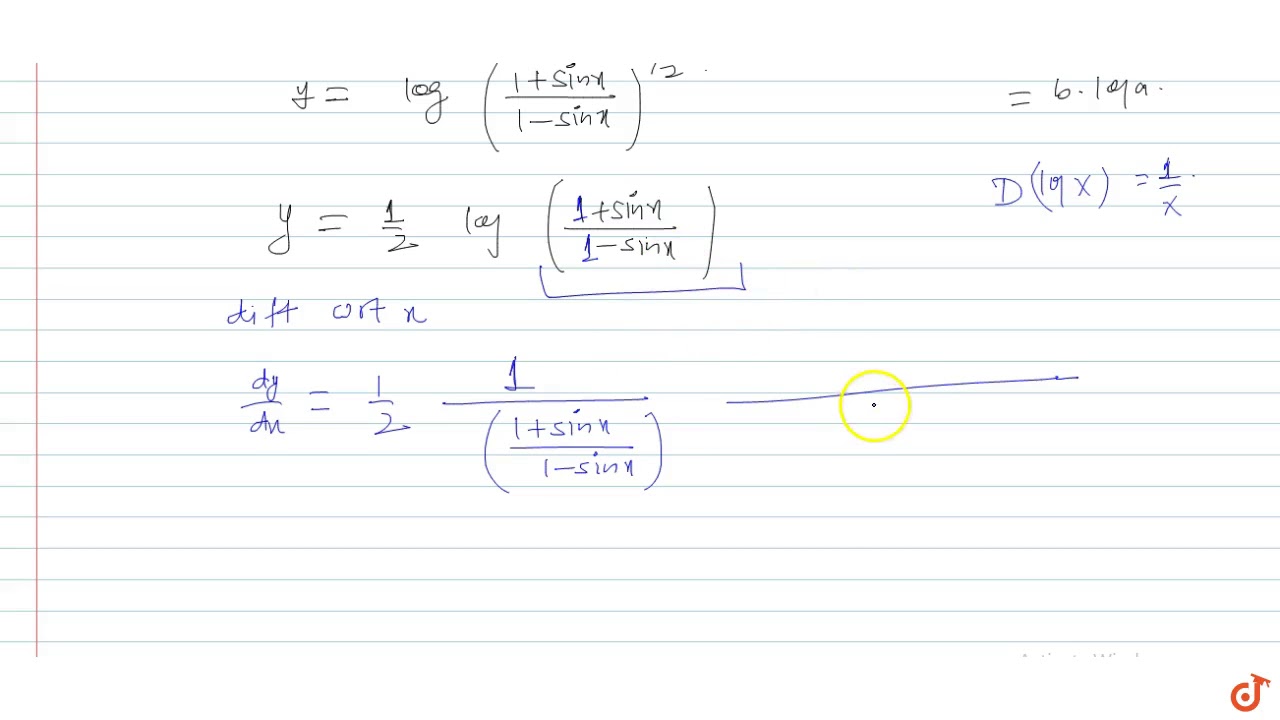 y = log ((1+sinx)/(1-sinx))^1/2 = b.loga.
D(log x) = 1/x.
y = 1/2 log ((1+sinx)/(1-sinx))
diff wrt x
dy/dx = 1/2 1/((1+sinx)/(1-sinx))